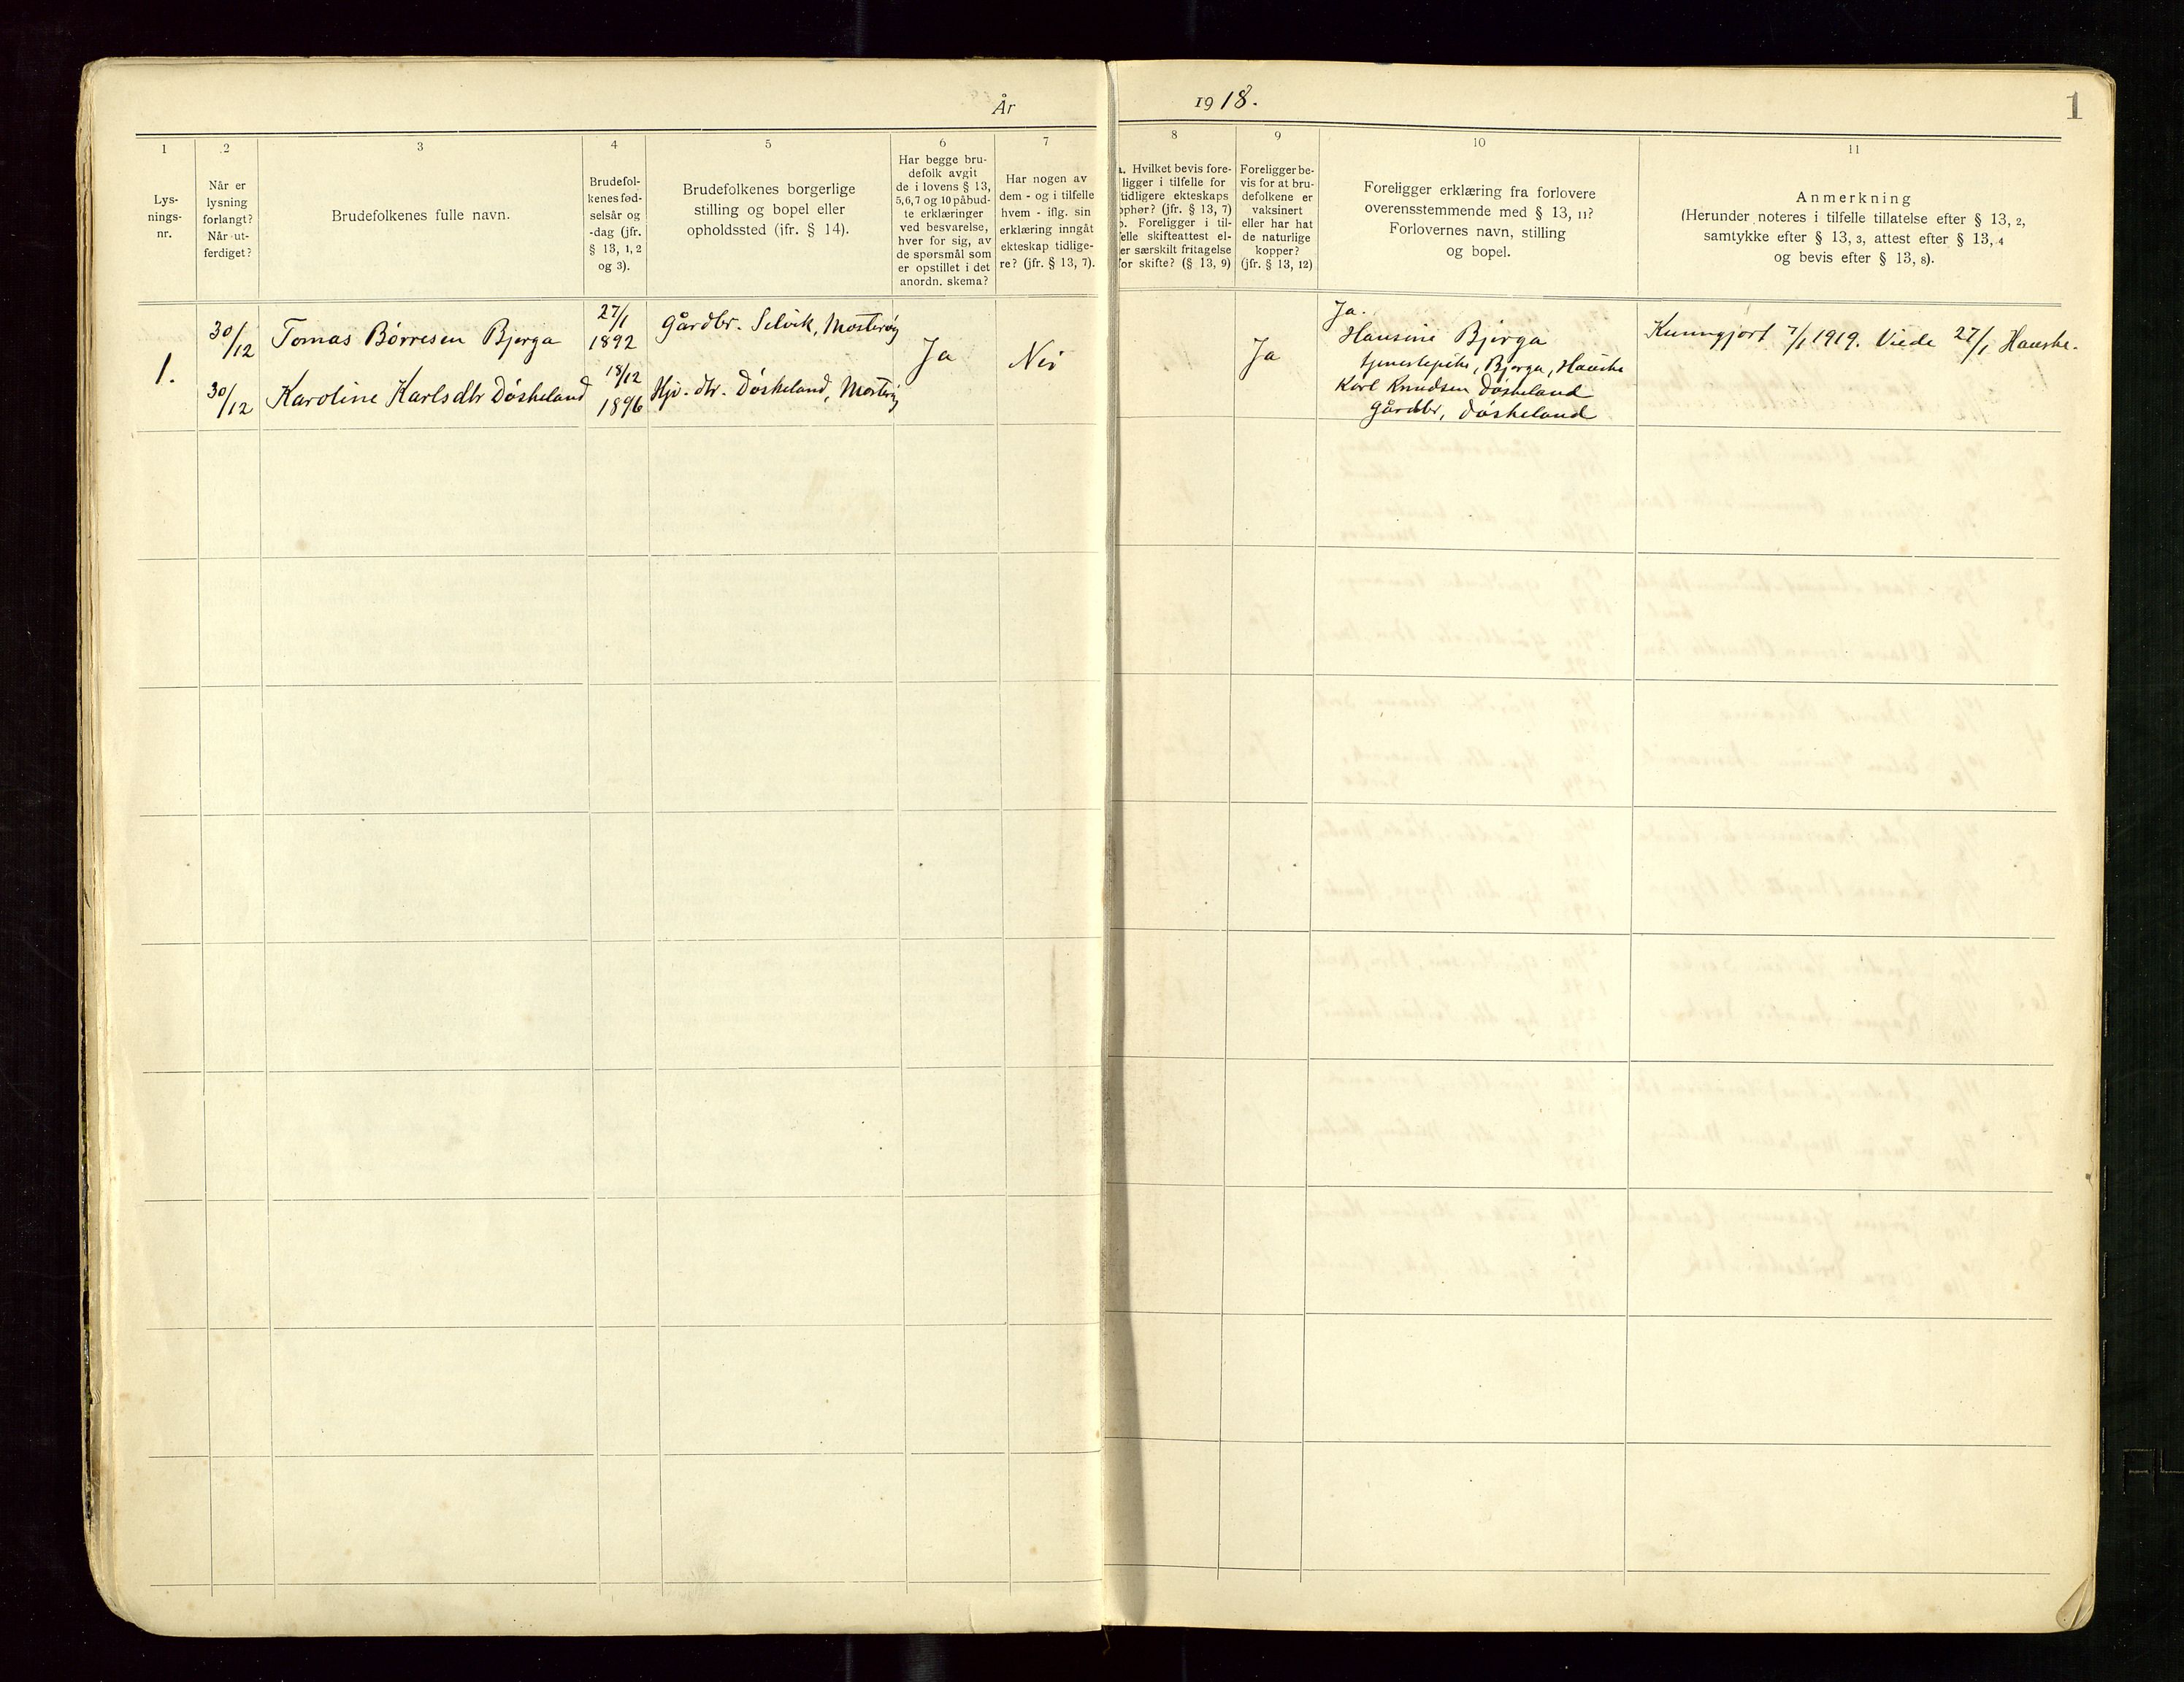 År 1918.
1
1
Lys-
nings-
nr.
2
Når er
lysning
forlangt?
Når ut-
ferdiget?
3
Brudefolkenes fulle navn.
4
Brudefol-
kenes fød-
selsår og
-dag (jfr.
§ 13, 1, 2
og 3).
5
Brudefolkenes borgerlige
stilling og bopel eller
opholdssted (ifr. § 14).
6
Har begge bru-
defolk avgit
de i lovens § 13,
5, 6, 7 og 10 påbud-
te erklæringer
ved besvarelse,
hver for sig, av
de spørsmål som
er opstillet i det
anordn. skema?
7
Har nogen av
dem - og i tilfelle
hvem - iflg. sin
erklæring inngåt
ekteskap tidlige-
re? (jfr. § 13, 7).
8
. Hvilket bevis fore-
ligger i tilfelle for
tidligere ekteskaps
ophør? (jfr. § 13, 7)
. Foreligger i til-
felle skifteattest el-
er særskilt fritagelse
for skifte? (§ 13, 9)
9
Foreligger be-
vis for at bru-
defolkene er
vaksinert
eller har hat
de naturlige
kopper?
(jfr. § 13, 12)
10
Foreligger erklæring fra forlovere
overensstemmende med § 13, 11?
Forlovernes navn, stilling
og bopel.
11
Anmerkning
(Herunder noteres i tilfelle tillatelse efter § 13, 2,
samtykke efter § 13, 3, attest efter § 13, 4
og bevis efter § 13, 8).
1.
30/12
Tomas Børresen Bjerga
27/1
1892
Gårdbr. Selvik, Mosterøy
30/12
Karoline Karlsdtr Døskeland
18/12
1896
Hjv. dtr. Døskeland, Mosterøy
Ja
Nei
Ja
Ja.
Hansine Bjerga
tjenestepike, Bjerga, Hauske
Karl Knudsen Døskeland
Gårdbr, Døskeland
Kunngjort 7/1 1919. Viede 27/1 Hauske.